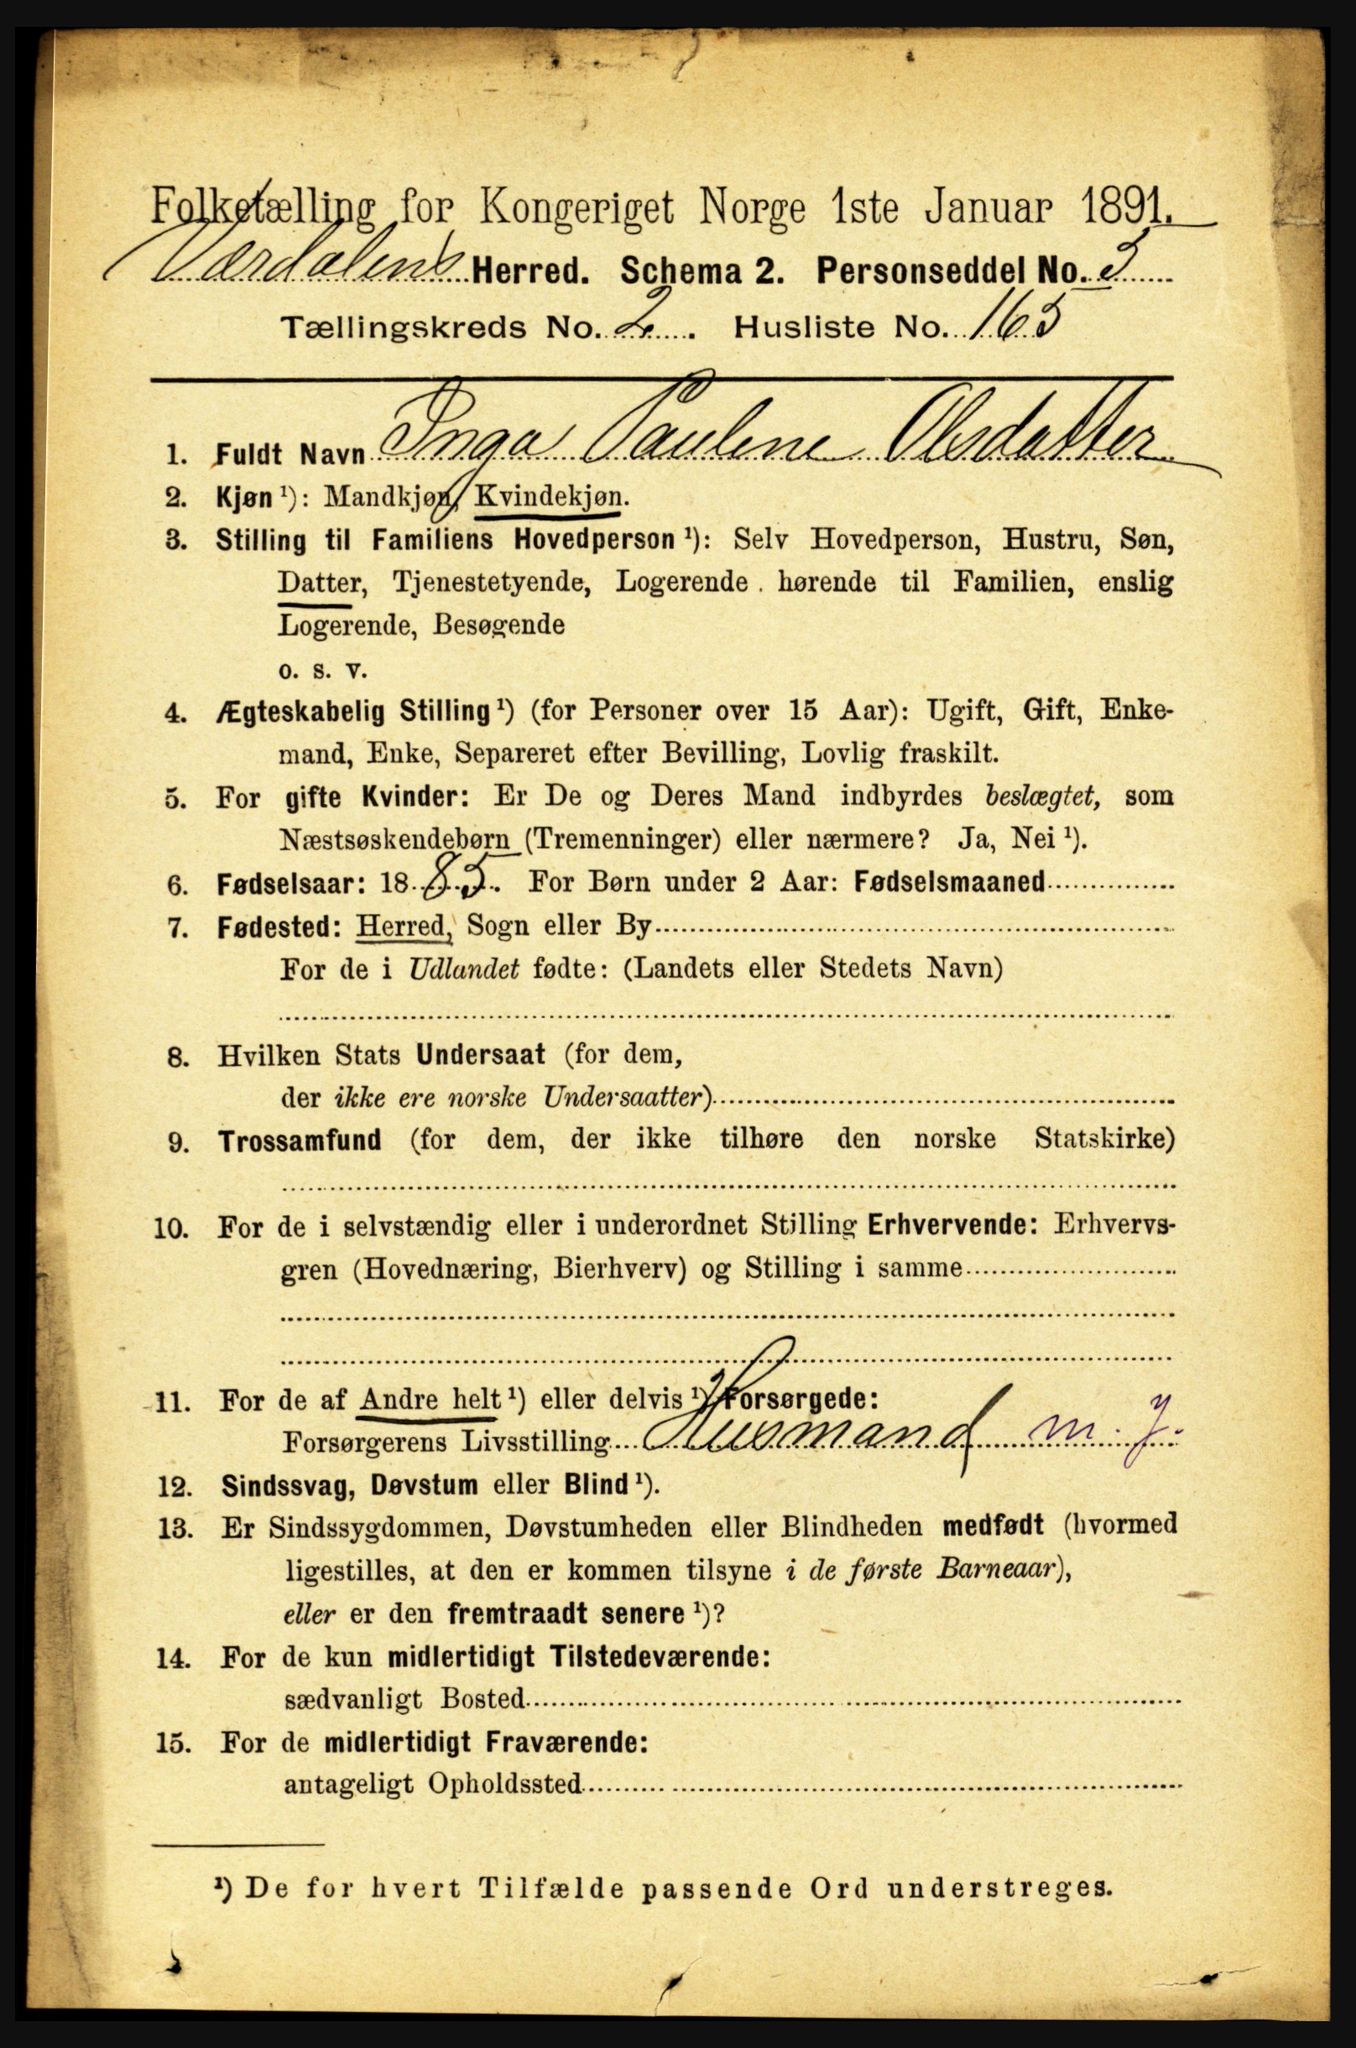 Folketælling for Kongeriget Norge 1ste Januar 1891.
Værdalens Herred. Schema 2. Personseddel No. 5
Tællingskreds No. 2. Husliste No. 165
1. Fuldt Navn Inga Pauline Olsdatter
2. Kjøn ¹): Mandkjøn, Kvindekjøn.
3. Stilling til Familiens Hovedperson ¹): Selv Hovedperson, Hustru, Søn,
Datter, Tjenestetyende, Logerende hørende til Familien, enslig
Logerende, Besøgende
o. s. v.
4. Ægteskabelig Stilling ¹) (for Personer over 15 Aar): Ugift, Gift, Enke-
mand, Enke, Separeret efter Bevilling, Lovlig fraskilt.
5. For gifte Kvinder: Er De og Deres Mand indbyrdes beslægtet, som
Næstsøskendebørn (Tremenninger) eller nærmere? Ja, Nei ¹).
6. Fødselsaar: 1885. For Børn under 2 Aar: Fødselsmaaned
7. Fødested: Herred, Sogn eller By
For de i Udlandet fødte: (Landets eller Stedets Navn)
8. Hvilken Stats Undersaat (for dem,
der ikke ere norske Undersaatter)
9. Trossamfund (for dem, der ikke tilhøre den norske Statskirke)
10. For de i selvstændig eller i underordnet Stilling Erhvervende: Erhvervs-
gren (Hovednæring, Bierhverv) og Stilling i samme
11. For de af Andre helt ¹) eller delvis ¹) Forsørgede:
Forsørgerens Livsstilling Husmand m. J.
12. Sindssvag, Døvstum eller Blind ¹).
13. Er Sindssygdommen, Døvstumheden eller Blindheden medfødt (hvormed
ligestilles, at den er kommen tilsyne i de første Barneaar),
eller er den fremtraadt senere ¹)?
14. For de kun midlertidigt Tilstedeværende:
sædvanligt Bosted
15. For de midlertidigt Fraværende:
antageligt Opholdssted
¹) De for hvert Tilfælde passende Ord understreges.